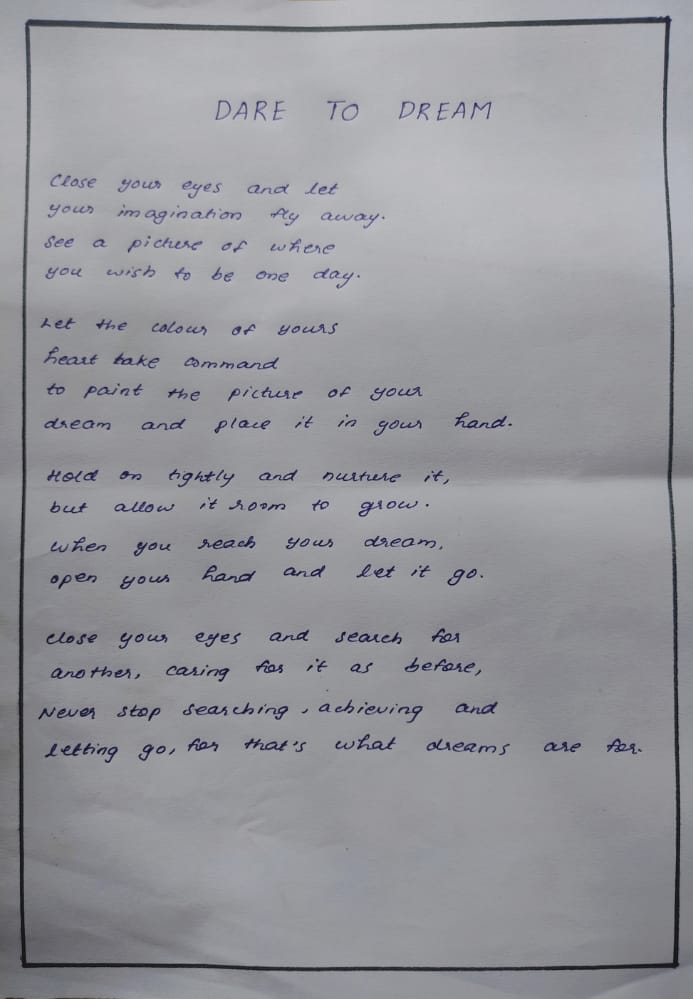 DARE TO DREAM
Close your eyes and let
your imagination fly away.
See a picture of where
you wish to be one day.
Let the colour of yours
heart take command
to paint the picture of your
dream and place it in your hand.
Hold on tightly and nurture it,
but allow it room to grow.
when you reach your dream,
open your hand and let it go.
close your eyes and search for
another, caring for it as before,
Never stop searching, achieving and
letting go, for that's what dreams are for.